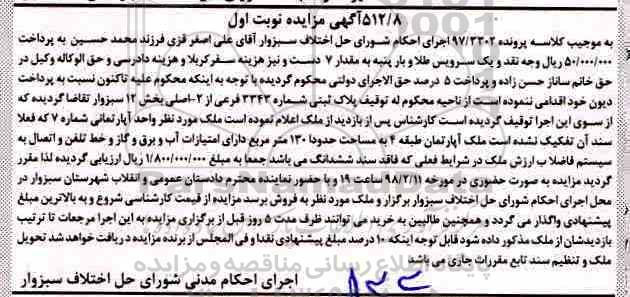 ۵۱۲/۸آگهی مزایده نوبت اول
به موجب کلاسه پرونده ۹۷/۳۳۰۲ اجرای احکام شورای حل اختلاف سبزوار آقای علی اصغر قزی فرزند محمد حسین به پرداخت
۵۰/۰۰۰/۰۰۰ ریال وجه نقد و یک سرویس طلا و بار پنبه به مقدار ۷ دست و نیز هزینه سفر کربلا و هزینه دادرسی و حق الوکاله وکیل در
حق خانم ساناز حسن زاده و پرداخت ۵ درصد حق الاجرای دولتی محکوم گردیده با توجه به اینکه محکوم علیه تاکنون نسبت به پرداخت
دیون خود اقدامی ننموده است از ناحیه محکوم له توقیف پلاک ثبتی شماره ۳۳۴۳ فرعی از ۲-اصلی بخش ۱۲ سبزوار تقاضا گردیده که
از سوی این اجرا توقیف گردیده است کارشناس پس از بازدید از ملک اعلام نموده است ملک مورد نظر واحد آپارتمانی شماره ۷ که فعلا
سند آن تفکیک نشده است ملک آپارتمان طبقه ۴ به مساحت حدودا ۱۳۰ متر مربع دارای امتیازات آب و برق و گاز و خط تلفن و اتصال به
سیستم فاضلاب ارزش ملک در شرایط فعلی که فاقد سند ششدانگ می باشد جمعا به مبلغ ۱/۸۰۰/۰۰۰/۰۰۰ ریال ارزیابی گردیده لذا مقرر
گردید مزایده به صورت حضوری در مورخه ۹۸/۲/۱۱ ساعت ۱۹ و با حضور نماینده محترم دادستان عمومی و انقلاب شهرستان سبزوار در
محل اجرای احکام شورای حل اختلاف سبزوار برگزار و ملک مورد نظر به فروش برسد مزایده از قیمت کارشناسی شروع و به بالاترین مبلغ
پیشنهادی واگذار می گردد و همچنین طالبین به خرید می توانند ظرف مدت ۵ روز قبل از برگزاری مزایده به این اجرا مرجعات تا ترتیب
بازدیدشان از ملک مذکور داده شود قابل توجه اینکه ۱۰ درصد مبلغ پیشنهادی نقدا و فی المجلس از برنده مزایده دریافت خواهد شد تحویل
ملک و تنظیم سند تابع مقررات جاری می باشد
اجرای احکام مدنی شورای حل اختلاف سبزوار